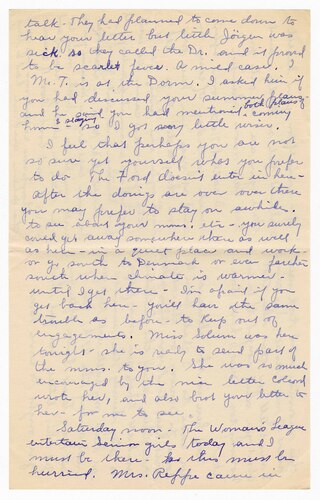 talk - They had planned to come down to
hear your letter but little Jörgen was
sick so they called the Dr. and it proved
to be scarlet fever. A mild case. I
Mr. T. is at the Dorm. I asked him if
you had discussed your summer plans
and he said you had mentioned both plans coming
home & staying so I got very little wiser.
I feel that perhaps you are not
so sure yet yourself what you prefer
to do The Ford doesn't enter in here -
After the doings are over over there
you may prefer to stay on awhile.
to see about your mms. etc - you surely
could get away somewhere there as well
as here - in a quiet place and work -
or go south to Denmark or even farther
south when climate is warmer -
until I get there - I'm afraid if you
get back here - you'll have the same
trouble as before - to keep out of
engagements. Miss Solum was here
tonight - she is ready to send part of
the mms. to you. She was so much
encouraged by the nice letter
wrote her, and also brot your letter to
her - for me to see.
Saturday noon - The Woman's League
entertain Senior girls today and I
must be there. So this must be
hurried. Mrs. came in